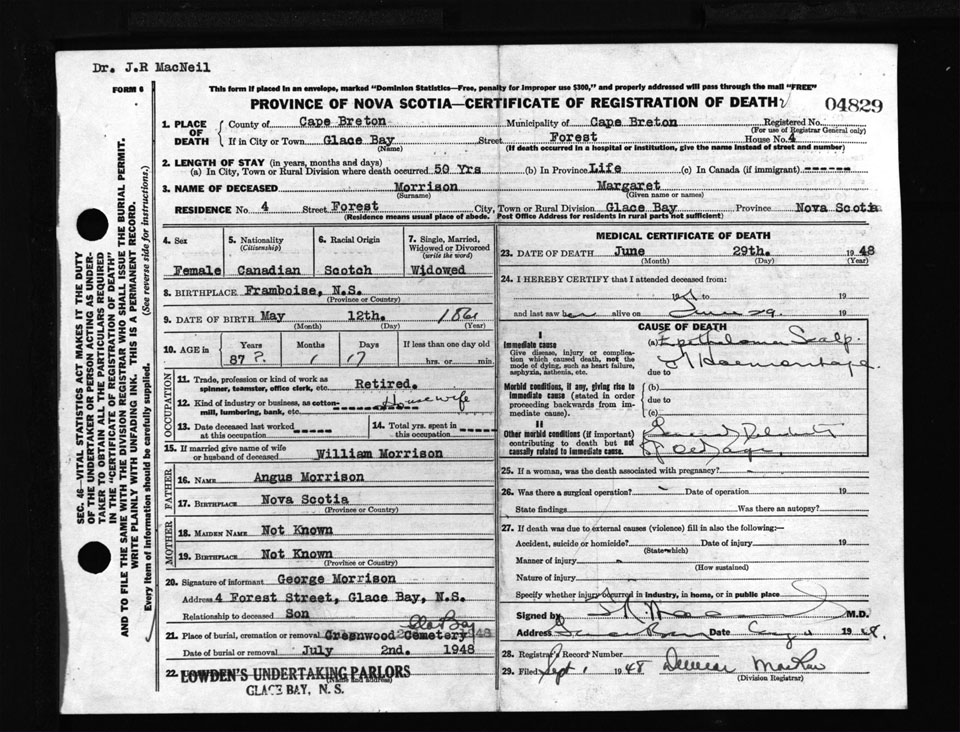 Dr. J.R MacNeil
FORM 6
This form if placed in an envelope, marked "Dominion Statistics—Free, penalty for improper use $300," and properly addressed will pass through the mail "FREE"
PROVINCE OF NOVA SCOTIA—CERTIFICATE OF REGISTRATION OF DEATH
04829
1. PLACE OF DEATH
County of Cape Breton Municipality of Cape Breton Registered No.
(For use of Registrar General only)
If in City or Town Glace Bay Street Forest House No. 4
(Name) (If death occurred in a hospital or institution, give the name instead of street and number)
2. LENGTH OF STAY (in years, months and days)
(a) In City, Town or Rural Division where death occurred 50 Yrs (b) In Province Life (c) In Canada (if immigrant) ------
3. NAME OF DECEASED Morrison Margaret
(Surname) (Given name or names)
RESIDENCE No. 4 Street Forest City, Town or Rural Division Glace Bay Province Nova Scotia
(Residence means usual place of abode. Post Office Address for residents in rural parts not sufficient)
4. Sex
Female
5. Nationality
(Citizenship)
Canadian
6. Racial Origin
Scotch
7. Single, Married,
Widowed or Divorced
(write the word)
Widowed
8. BIRTHPLACE Framboise, N.S.
(Province or Country)
9. DATE OF BIRTH May 12th. 1861
(Month) (Day) (Year)
10. AGE in
Years Months Days If less than one day old
87 ? 1 17 hrs. or min.
OCCUPATION
11. Trade, profession or kind of work as
spinner, teamster, office clerk, etc. Retired.
12. Kind of industry or business, as cotton-
mill, lumbering, bank, etc. Housewife
13. Date deceased last worked
at this occupation
14. Total yrs. spent in
this occupation
15. If married give name of wife
or husband of deceased William Morrison
FATHER
16. NAME Angus Morrison
17. BIRTHPLACE Nova Scotia
(Province or Country)
MOTHER
18. MAIDEN NAME Not Known
19. BIRTHPLACE Not Known
(Province or Country)
20. Signature of informant George Morrison
Address 4 Forest Street, Glace Bay, N.S.
Relationship to deceased Son
21. Place of burial, cremation or removal Greenwood Cemetery
Date of burial or removal July 2nd. 1948
22. LOWDEN'S UNDERTAKING PARLORS
(Name and address)
GLACE BAY, N. S.
MEDICAL CERTIFICATE OF DEATH
23. DATE OF DEATH June 29th. 1948
(Month) (Day) (Year)
24. I HEREBY CERTIFY that I attended deceased from:
19 to 19
and last saw her alive on June 29. 19
CAUSE OF DEATH
I
Immediate cause
Give disease, injury or complica-
tion which caused death, not the
mode of dying, such as heart failure,
asphyxia, asthenia, etc.
(a) Epithelioma Scalp.
due to
Morbid conditions, if any, giving rise to
immediate cause (stated in order
proceeding backwards from im-
mediate cause).
(b)
due to
(c)
II
Other morbid conditions (if important)
contributing to death but not
causally related to immediate cause.
old age.
25. If a woman, was the death associated with pregnancy?
26. Was there a surgical operation? Date of operation 19
State findings Was there an autopsy?
27. If death was due to external causes (violence) fill in also the following:—
Accident, suicide or homicide? Date of injury 19
(State which)
Manner of injury
(How sustained)
Nature of injury
Specify whether injury occurred in industry, in home, or in public place
Signed by M.D.
Address Date 1948.
28. Registrar's Record Number
29. Filed Sept 1 1948
(Division Registrar)
SEC. 46—VITAL STATISTICS ACT MAKES IT THE DUTY
OF THE UNDERTAKER OR PERSON ACTING AS UNDER-
TAKER TO OBTAIN ALL THE PARTICULARS REQUIRED
IN THE "CERTIFICATE OF REGISTRATION OF DEATH"
AND TO FILE THE SAME WITH THE DIVISION REGISTRAR WHO SHALL ISSUE THE BURIAL PERMIT.
WRITE PLAINLY WITH UNFADING INK. THIS IS A PERMANENT RECORD.
Every item of information should be carefully supplied. (See reverse side for instructions.)